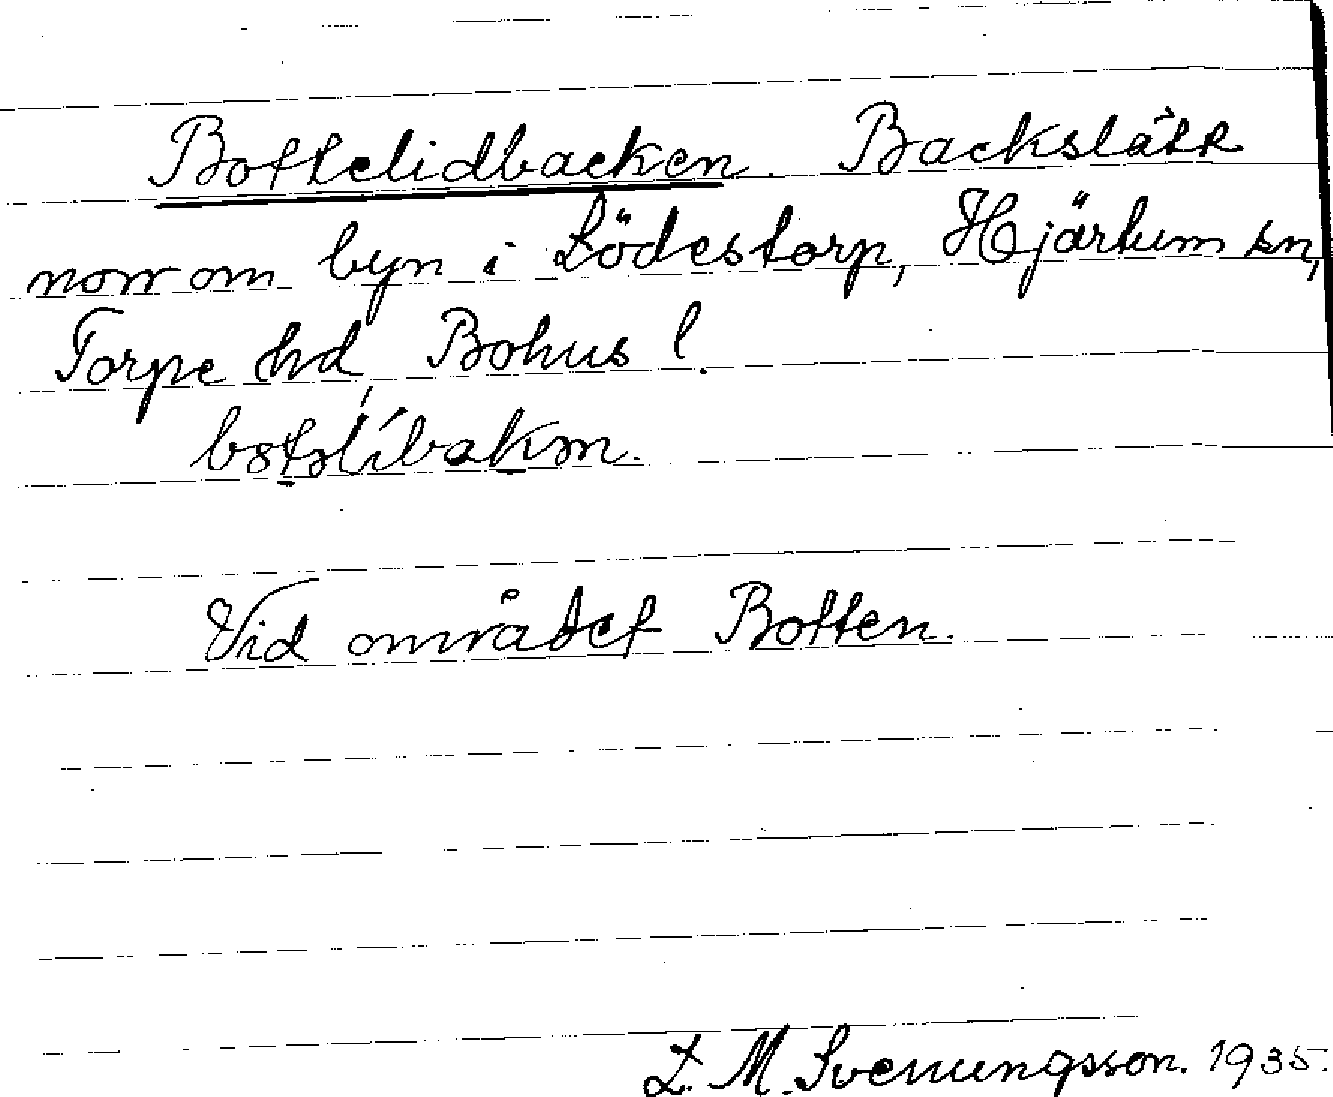 Bottelidbacken. Backslätt
norr om byn i Lödestorp, Hjärtum sn,
Torpe hd, Bohus l.
Vid området Botten.
L. M. Svenungsson. 1935.